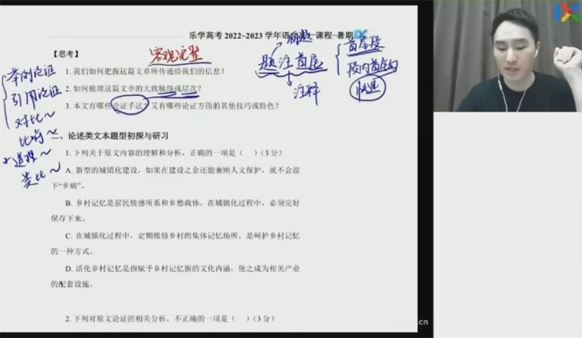 乐学高考 2022~2023 学年语文 课程-暑期
【思考】
客观完整
标题
题 注 首尾
注释
首尾段
段内首尾句
快速
举例论证
引用论证
对比~
比喻~
道理~
类比~
1. 我们如何把握这篇文章所传递给我们的信息?
2. 如何梳理这篇文章的大致脉络或层次?
3. 本文有哪些论证手法?又有哪些论证方面的其他技巧或特色?
二、论述类文本题型初探与研习
1. 下列关于原文内容的理解和分析,正确的一项是( )(3 分)
A. 新型的城镇化建设,如果在建设之余还能兼顾人文保护,就不会留
下“乡痛”。
B. 乡村记忆是居民情感所系和乡愁载体,在城镇化过程中,必须完好
保存下来。
C. 在城镇化过程中,定期维修乡村的集体记忆场所,是呵护乡村记忆
的一种方式。
D. 活化乡村记忆是指赋予乡村记忆新的文化内涵,使之成为相关产业
的配套设施。
2. 下列对原文论证的相关分析,不正确的一项是( )(3 分)
.cn